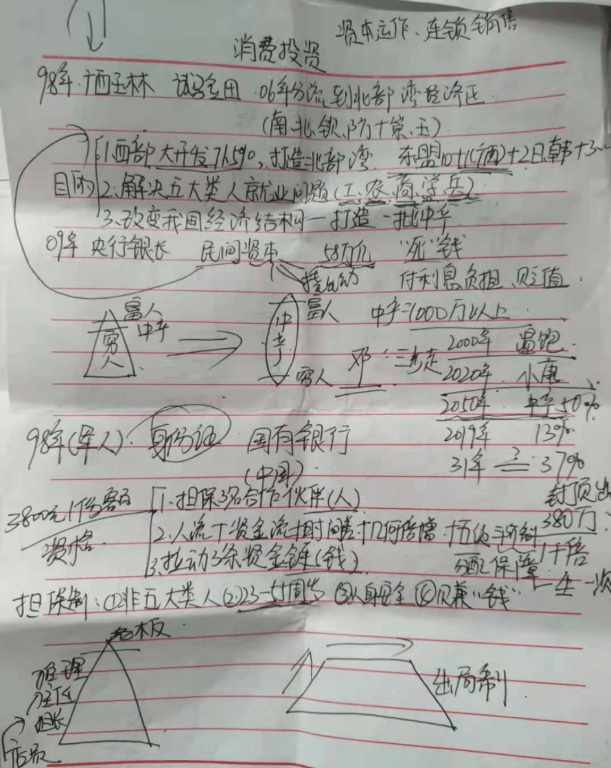 资本运作、连锁销售
消费投资
98年 广西玉林 试验田 06年分流到北部湾经济区
(南、北、钦、防+崇、玉)
目的 1.西部大开发 打造北部湾 东盟10+1(广西)+2日、韩+3
2.解决五大类人就业问题(工、农、商、学、兵)
3.改变我国经济结构—打造一批中产
09年 央行银长 民间资本 58万亿 "死"钱
付利息负担、贬值
富人 中产 穷人
富人 中产 穷人
中产=1000万以上
邓 三步走
2000年 温饱
2020年 小康
2050年 中产50%
2019年 13%
31年 = 37%
?
98年(军人) 身份证 国有银行
(中国)
封顶
3800元1份 资格
1.担保3名合作伙伴(人)
2.人流+资金流+时间差+几何倍增
380万
3.拉动3条资金链(钱)
分配保障 1千倍
一生一次
担保制:①非五大类人②23-55周岁 ③人身安全 ④只兼"钱"
老板
组长
出局制